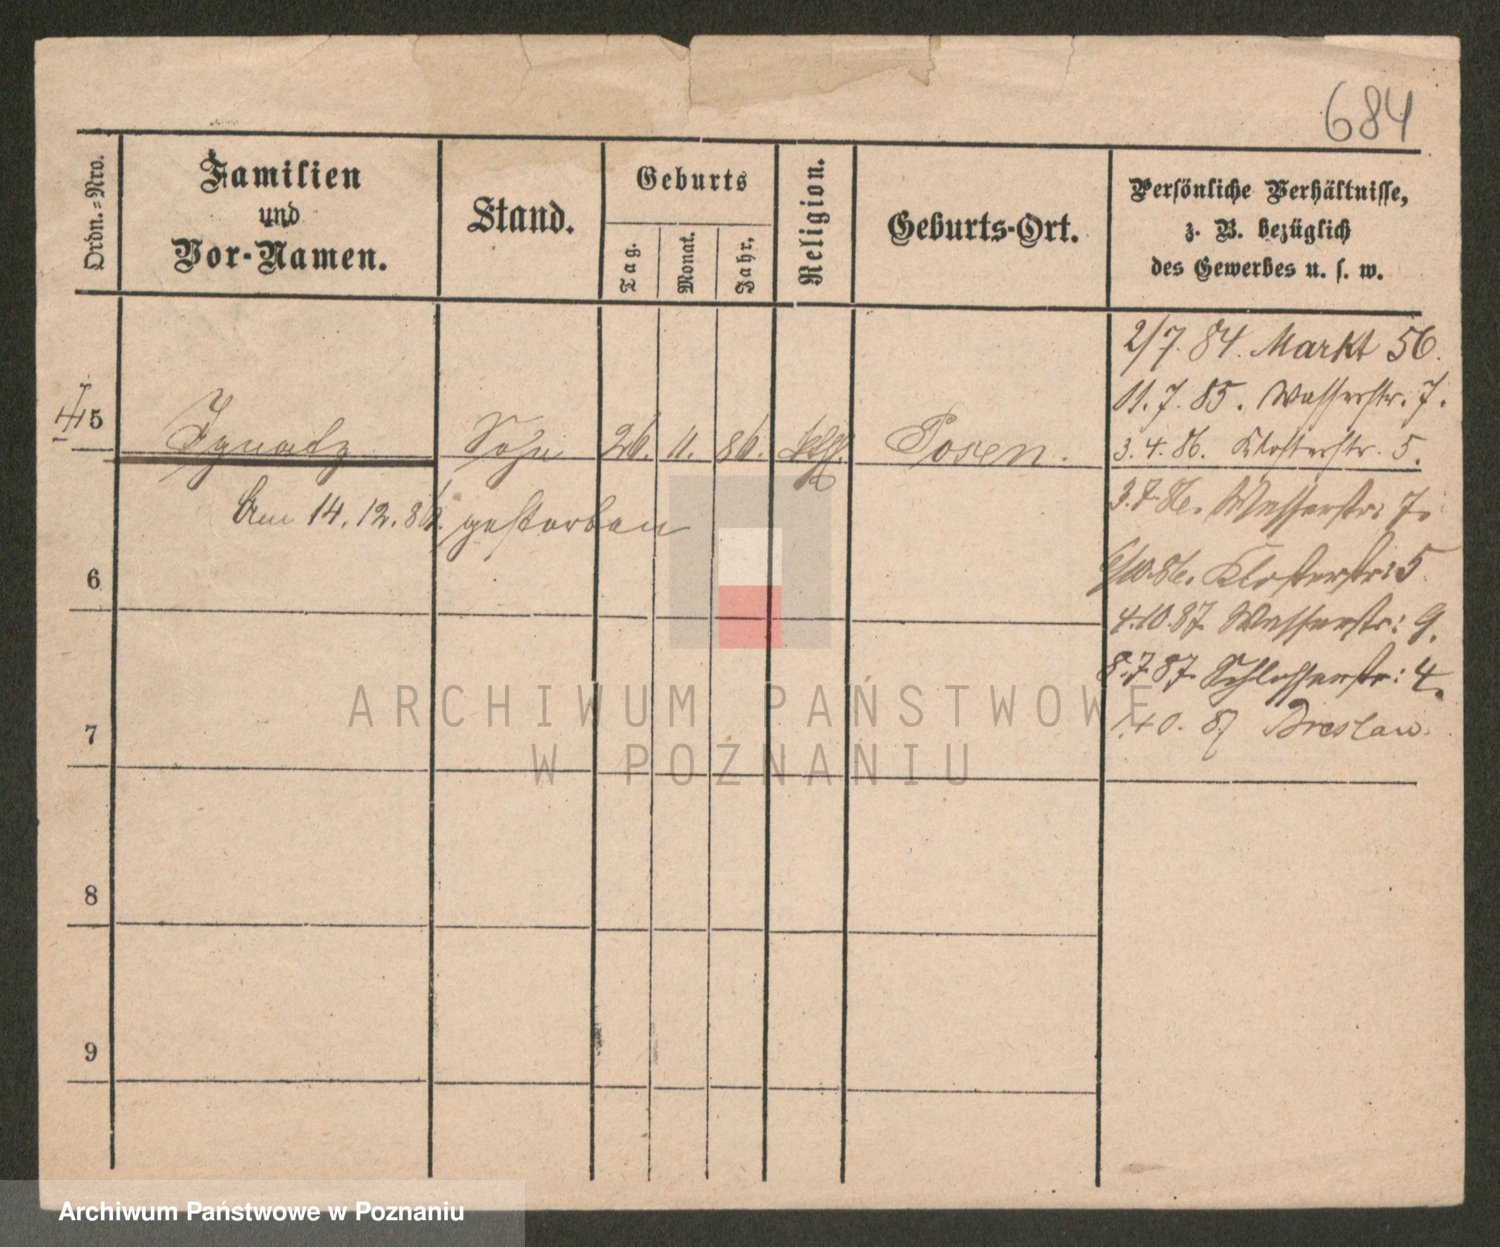 684
Ordn.-Nro.
Familien
und
Vor-Namen.
Stand.
Geburts
Tag.
Monat.
Jahr.
Religion.
Geburts-Ort.
Persönliche Verhältnisse,
z. B. bezüglich
des Gewerbes u. s. w.
2/7. 84. Markt 56.
11. 7. 85. Wasserstr. 7.
3. 4. 86. Klosterstr. 5.
3.7.86. Wasserstr: 7.
/10.86. Klosterstr: 5.
4.10.87. Wasserstr: 9.
8.7.87. Schlosserstr: 4.
1.10. 87 Breslau.
5 Ignatz Sohn 26. 11. 86. Posen.
Am 14. 12. 86. gestorben
6
7
8
9
ARCHIWUM PAŃSTWOWE
W POZNANIU
Archiwum Państwowe w Poznaniu